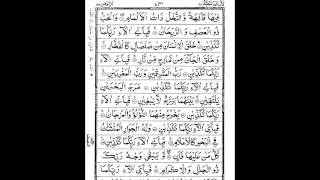 فِيْهَا فَاكِهَةٌ وَّالنَّخْلُ ذَاتُ الْاَكْمَامِ ۝ وَالْحَبُّ
ذُو الْعَصْفِ وَالرَّيْحَانُ ۝ فَبِاَيِّ اٰلَآءِ رَبِّكُمَا
تُكَذِّبٰنِ ۝ خَلَقَ الْاِنْسَانَ مِنْ صَلْصَالٍ كَالْفَخَّارِ ۝
وَخَلَقَ الْجَآنَّ مِنْ مَّارِجٍ مِّنْ نَّارٍ ۝ فَبِاَيِّ اٰلَآءِ رَبِّكُمَا
تُكَذِّبٰنِ ۝ رَبُّ الْمَشْرِقَيْنِ وَرَبُّ الْمَغْرِبَيْنِ ۝
فَبِاَيِّ اٰلَآءِ رَبِّكُمَا تُكَذِّبٰنِ ۝ مَرَجَ الْبَحْرَيْنِ
يَلْتَقِيٰنِ ۝ بَيْنَهُمَا بَرْزَخٌ لَّا يَبْغِيٰنِ ۝ فَبِاَيِّ اٰلَآءِ رَبِّكُمَا
تُكَذِّبٰنِ ۝ يَخْرُجُ مِنْهُمَا اللُّؤْلُؤُ وَالْمَرْجَانُ ۝
فَبِاَيِّ اٰلَآءِ رَبِّكُمَا تُكَذِّبٰنِ ۝ وَلَهُ الْجَوَارِ الْمُنْشَئٰتُ
فِي الْبَحْرِ كَالْاَعْلَامِ ۝ فَبِاَيِّ اٰلَآءِ رَبِّكُمَا تُكَذِّبٰنِ ۝
كُلُّ مَنْ عَلَيْهَا فَانٍ ۝ وَّيَبْقٰى وَجْهُ رَبِّكَ
ذُو الْجَلٰلِ وَالْاِكْرَامِ ۝ فَبِاَيِّ اٰلَآءِ رَبِّكُمَا